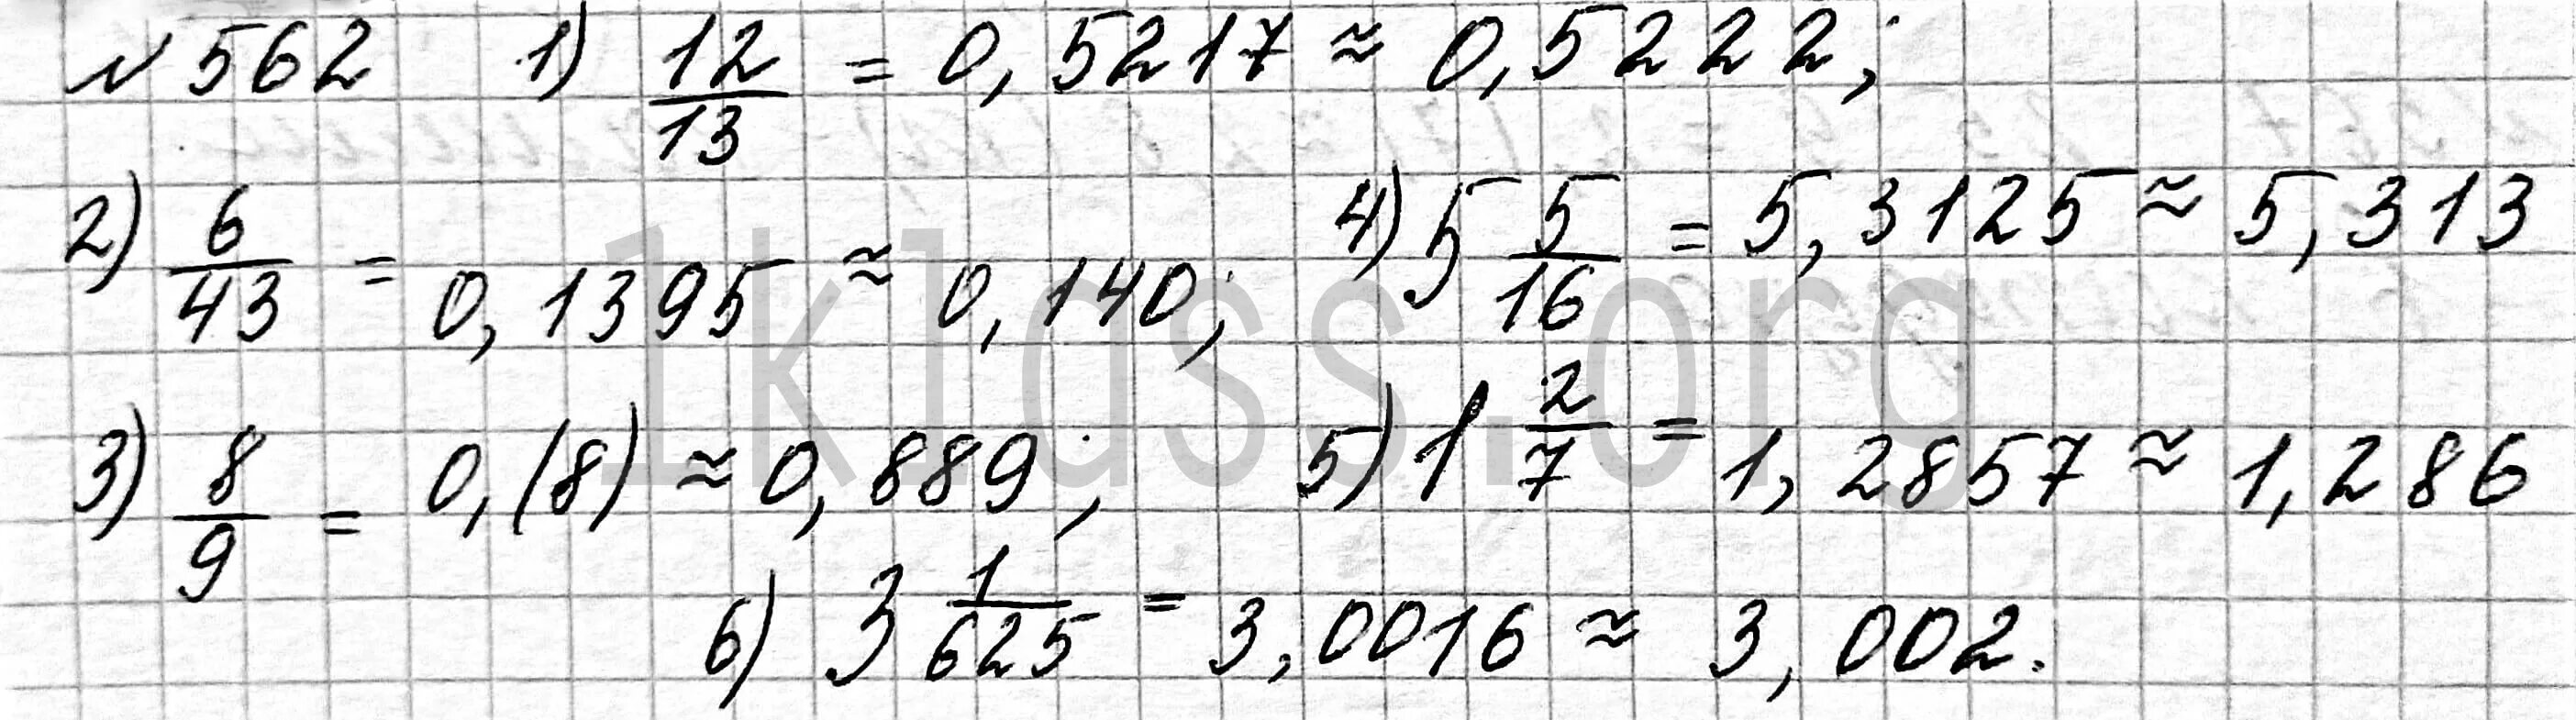 № 562 1) 12/13 = 0,5217 ≈ 0,5222;
2) 6/43 = 0,1395 ≈ 0,140; 4) 5 5/16 = 5,3125 ≈ 5,313
3) 8/9 = 0,(8) ≈ 0,889; 5) 1 2/7 = 1,2857 ≈ 1,286
6) 3 1/625 = 3,0016 ≈ 3,002.
1klass.org